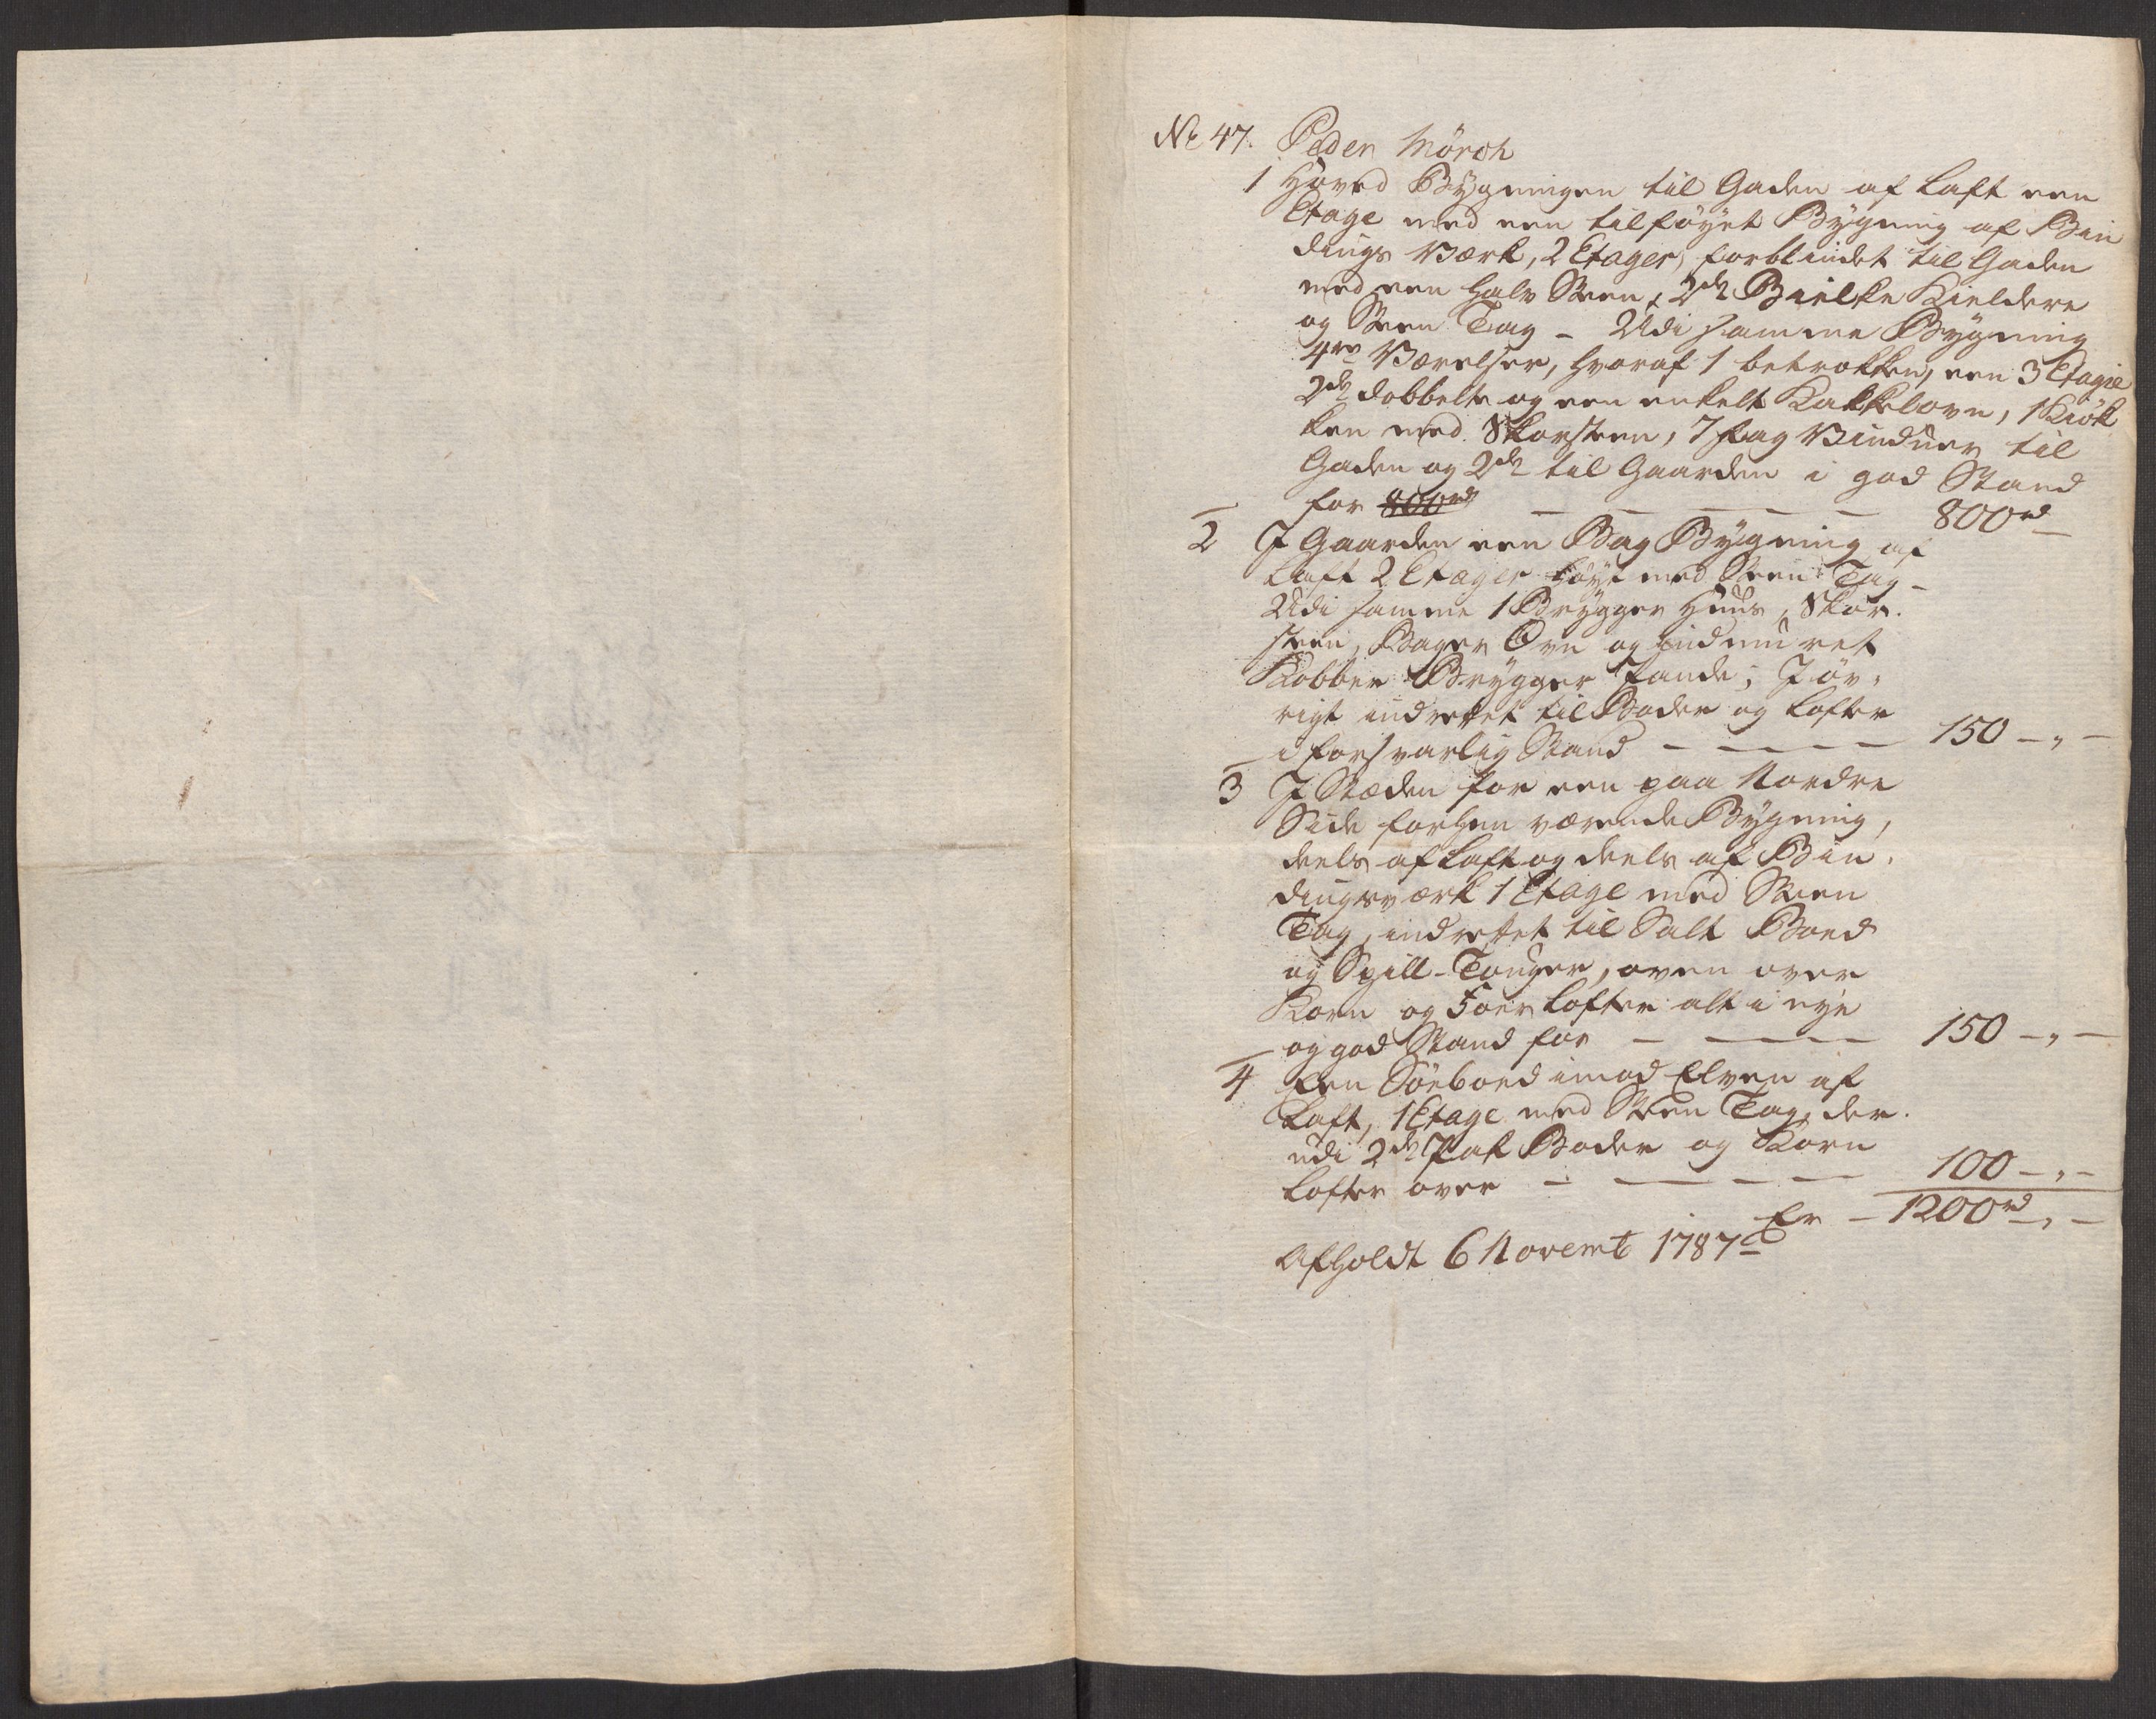 No 47. Peder Mörch
1 Hoved Bÿgningen til Gaden af Laft een
Etage med een tilföÿet Bÿgning af Bin
dings Værk, 2 Etager, forblindet til Gaden
med een halv Steen, 2de Bielke Kieldere
og Steen Tag - Udi samme Bÿgning
4re Værelser, hvoraf 1 betrokken, een 3 Etagie
2de dobbelte og een enkelt Kakkelovn, 1 Kiök
ken med Skorsteen, 7 Fag Vinduer til
Gaden og 2de til Gaarden i god Stand
for 800rd — — — — — 800rd
2 I Gaarden een Bag Bÿgning af
Laft 2 Etager höÿt med Steen Tag -
Udi samme 1 Brÿgger Huus, Skor-
steen, Bager Ovn og indmuret
Kobber Brÿgger Pande; I öv-
rigt indrettet til Boder og Lofter
i forsvarlig Stand — — — — 150 - „ -
3 I Stæden for een paa Nordre
Side forhen værende Bÿgning,
deels af Laft og deels af Bin-
dingsværk 1 Etage med Steen
Tag, indrettet til Salt Boed
og Spill-Touger, oven over
Korn og Foer Lofter alt i nÿe
og god Stand for — — — — 150 - „ -
4 Een Söeboed imod Elven af
Laft, 1 Etage med Steen Tag, der-
udi 2de Pak Boder og Korn
Lofter over — — — — 100 - „ -
Er - 1200rd - „ -
Afholdt 6 Novemb 1787